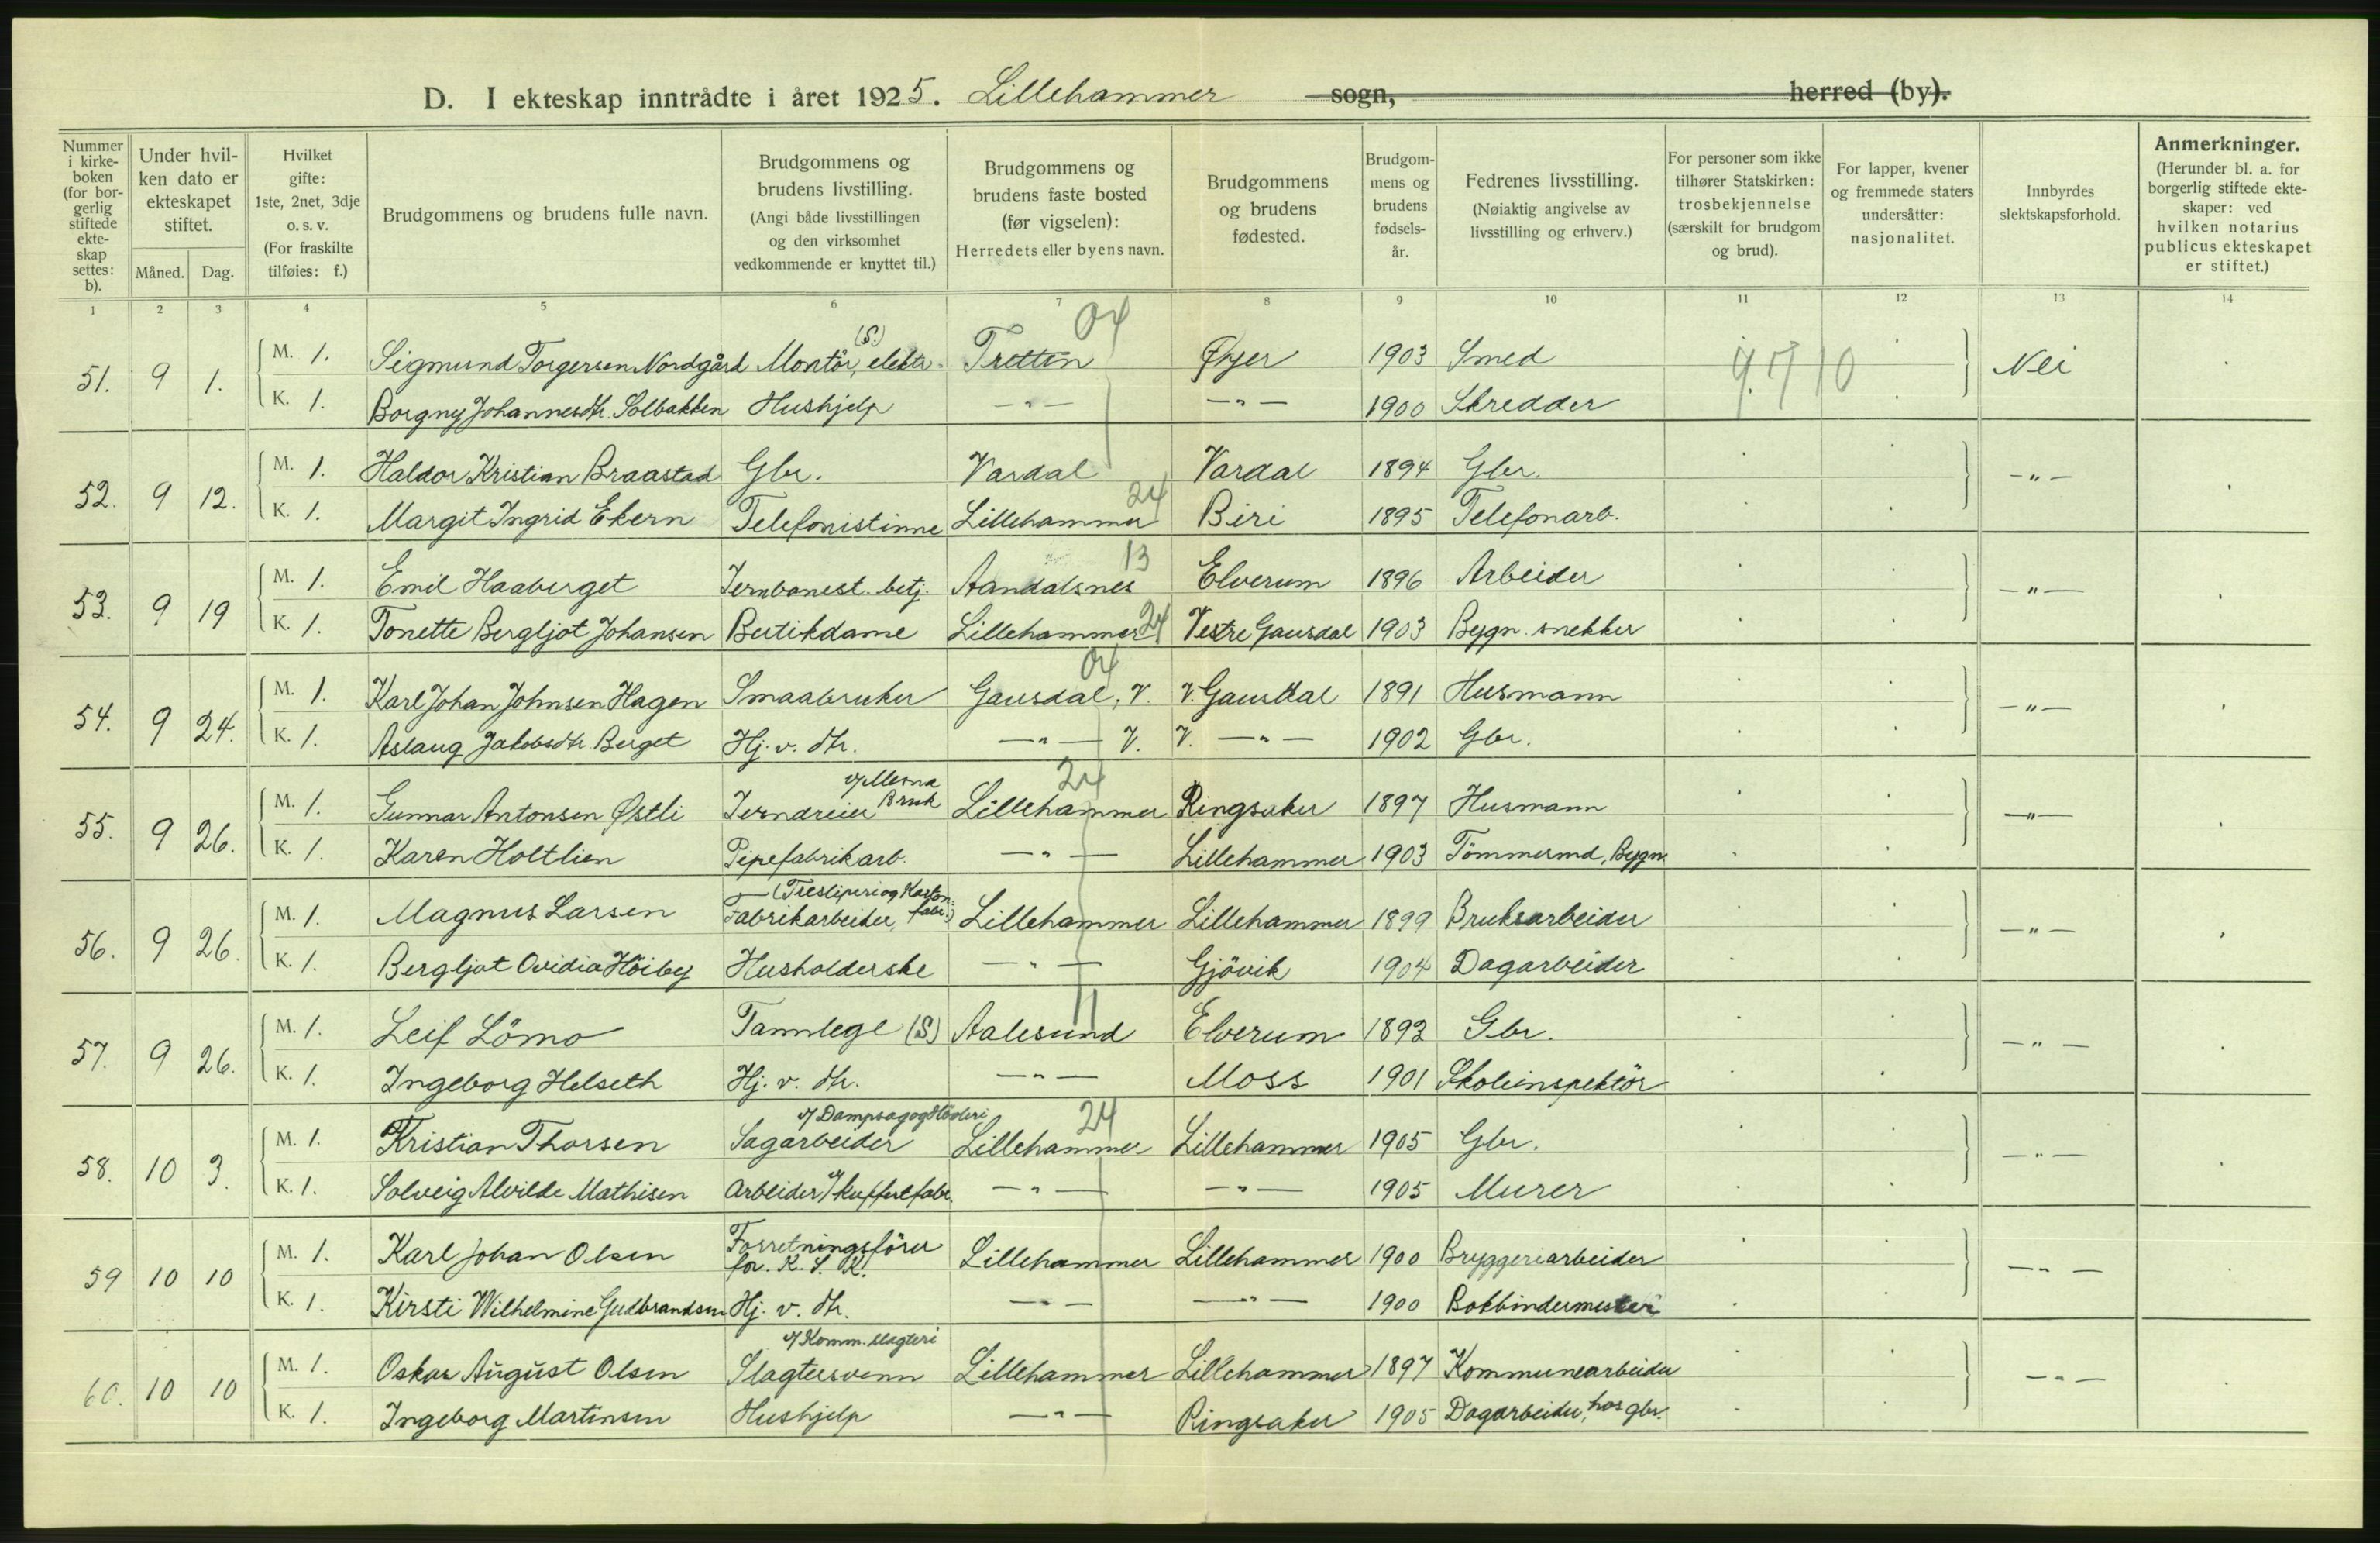 D. I ekteskap inntrådte i året 1925. Lillehammer sogn, herred (by).
Nummer i kirkeboken (for borgerlig stiftede ekteskap settes: b).
Under hvilken dato er ekteskapet stiftet.
Måned. Dag.
Hvilket gifte: 1ste, 2net, 3dje o. s. v. (For fraskilte tilføies: f.)
Brudgommens og brudens fulle navn.
Brudgommens og brudens livstilling. (Angi både livsstillingen og den virksomhet vedkommende er knyttet til.)
Brudgommens og brudens faste bosted (før vigselen): Herredets eller byens navn.
Brudgommens og brudens fødested.
Brudgommens og brudens fødselsår.
Fedrenes livsstilling. (Nøiaktig angivelse av livsstilling og erhverv.)
For personer som ikke tilhører Statskirken: trosbekjennelse (særskilt for brudgom og brud).
For lapper, kvener og fremmede staters undersåtter: nasjonalitet.
Innbyrdes slektskapsforhold.
Anmerkninger. (Herunder bl. a. for borgerlig stiftede ekteskaper: ved hvilken notarius publicus ekteskapet er stiftet.)
1 2 3 4 5 6 7 8 9 10 11 12 13 14
04
51. 9 1. M. 1. Sigmund Torgersen Nordgård Montör, elektr. (S.) Tretten Øyer 1903 Smed Nei
K. 1. Borgny Johannesdtr. Solbakken Hushjelp —„— —„— 1900 Skredder
52. 9 12. M. 1. Haldor Kristian Braastad Gbr. Vardal Vardal 1894 Gbr. —„—
K. 1. Margit Ingrid Ekern Telefonistinne Lillehammer 24 Biri 1895 Telefonarb.
53. 9 19 M. 1. Emil Haaberget Jernbanest. betj. Aandalsnes 13 Elverum 1896 Arbeider —„—
K. 1. Tonette Bergljot Johansen Butikdame Lillehammer 24 Vestre Gausdal 1903 Bygn. snekker
04
54. 9 24. M. 1. Karl Johan Johnsen Hagen Smaabruker Gausdal, V. V. Gausdal 1891 Husmann —„—
K. 1. Aslaug Jakobsdtr. Berget Hj. v. dtr. —„— V. V. —„— 1902 Gbr.
24
55. 9 26. M. 1. Gunnar Antonsen Østli Jerndreier v/Mesna Bruk Lillehammer Ringsaker 1897 Husmann —„—
K. 1. Karen Holtlien Pipefabrikarb. —„— Lillehammer 1903 Tömmermd, Bygn.
56. 9 26. M. 1. Magnus Larsen Fabrikarbeider, (Tresliperi og Kartonfabr.) Lillehammer Lillehammer 1899 Bruksarbeider —„—
K. 1. Bergljot Ovidia Höiby Husholderske —„— Gjövik 1904 Dagarbeider
11
57. 9 26. M. 1. Leif Lömo Tannlege (S) Aalesund Elverum 1893 Gbr. —„—
K. 1. Ingeborg Helseth Hj. v. dtr. —„— Moss 1901 Skoleinspektör
24
58. 10 3. M. 1. Kristian Thorsen Sagarbeider v/Dampsag og Hövleri Lillehammer Lillehammer 1905 Gbr. —„—
K. 1. Solveig Alvilde Mathisen Arbeider v/ kuffertfabr. —„— —„— 1905 Murer
59 10 10 M. 1. Karl Johan Olsen Forretningsförer for. K. S. K. Lillehammer Lillehammer 1900 Bryggeriarbeider —„—
K. 1. Kirsti Wilhelmine Gudbrandsen Hj. v. dtr. —„— —„— 1900 Bokbindermester
60. 10 10 M. 1. Oskar August Olsen Slagtersvenn v/Komm. slagteri Lillehammer Lillehammer 1897 Kommunearbeider —„—
K. 1. Ingeborg Martinsen Hushjelp —„— Ringsaker 1905 Dagarbeider, hos gbr.